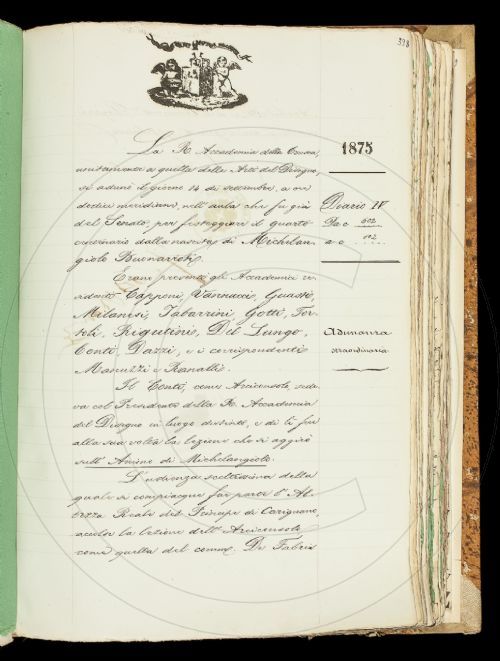 398
La R. Accademia della Crusca,
unitamente a quella delle Arti del Disegno,
si adunò il giorno 14 di settembre, a ore
dodici meridiane, nell'aula che fu già
del Senato, per festeggiare il quarto
centenario dalla nascita di Michelan-
giolo Buonarroti.
Erano presenti gli Accademici re-
sidenti Capponi, Vannucci, Guasti,
Milanesi, Tabarrini, Gotti, Tor-
toli, Rigutini, Del Lungo,
Conti, Dazzi, e i corrispondenti
Manuzzi e Ranalli.
Il Conti, come Arciconsolo, sede-
va col Presidente della R. Accademia
del Disegno in luogo distinto, e di lì fece
alla sua volta la lezione che si aggirò
sull'Animo di Michelangiolo.
L'udienza sceltissima della
quale si compiacque far parte l'Al-
tezza Reale del Principe di Carignano,
ascoltò la lezione dell'Arciconsolo
come quella del comm. De Fabris
1875
Diario IV
Da c. 502
a c. 502
Adunanza
straordinaria